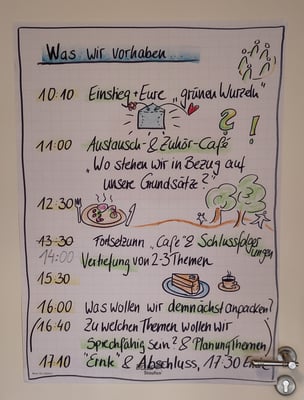 Was wir vorhaben
10:10 Einstieg + Eure „grünen Wurzeln"
? !
11:00 Austausch- & Zuhör-Café
"Wo stehen wir in Bezug auf
unsere Grundsätze?"
12:30
13:30 Fortsetzung „Café" & Schlussfolgerungen
14:00 Vertiefung von 2-3 Themen
15:30
16:00 Was wollen wir demnächst anpacken?
(16:40 Zu welchen Themen wollen wir
sprechfähig sein? & Planung Themen)
17:10 "Ernte" & Abschluss, 17:30 Ende